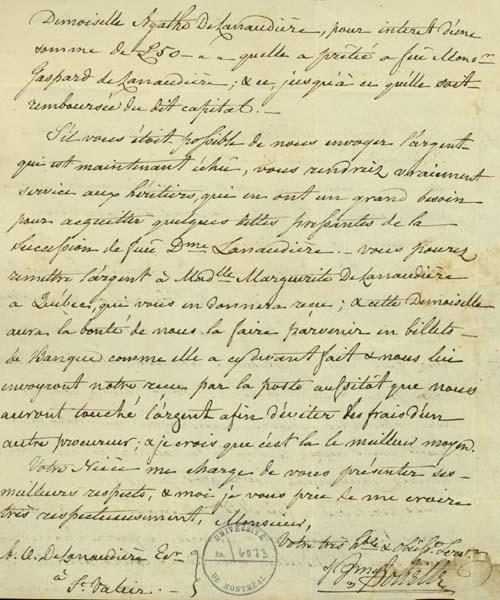 Demoiselle Agathe DeLanaudière, pour interet d'une
somme de £50 - " - qu'elle a prêtié a feü Monsr
Gaspard de Lanaudière; & ce, jusqu'à ce qu'elle soit
remboursée du dit capital. -
S'il vous étoit possible de nous envoyer l'argent
qui est maintenant échû, vous rendriez vraiment
service aux héritiers, qui en ont un grand besoin
pour acquitter quelques dettes pressantes de la
Succession de feüe Dme Lanaudière - vous pourez
remettre l'argent à Madlle Marguerite DeLanaudière
a Quebec, qui vous en donnera recu; & cette Demoiselle
aura la bonté de nous la faire parvenir en billets
de Banque comme elle a cy devant fait & nous lui
envoyront notre recu par la poste aussitôt que nous
auront touché l'argent afin d'éviter des frais d'un
autre procureur; & je crois que c'est là le meilleur moyen.
Votre Nièce me charge de vous présenter ses
meilleurs respects, & moi je vous prie de me croire
très respectueusement, Monsieur,
Votre très hble & obésst Servr
A. O. DeLanaudière Esr
à
St Valier. -
UNIVERSITÉ
6073
DE MONTRÉAL